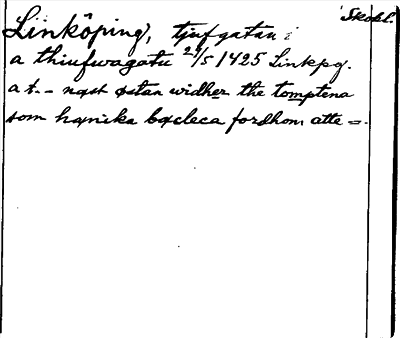 Skokl.
Linköping, tjufgatan i
a thiufwagatu 29/5 1425 Linkpg.
a t. – næst østan widher the tomptena
som hænika bæcleca fordhom atte =.